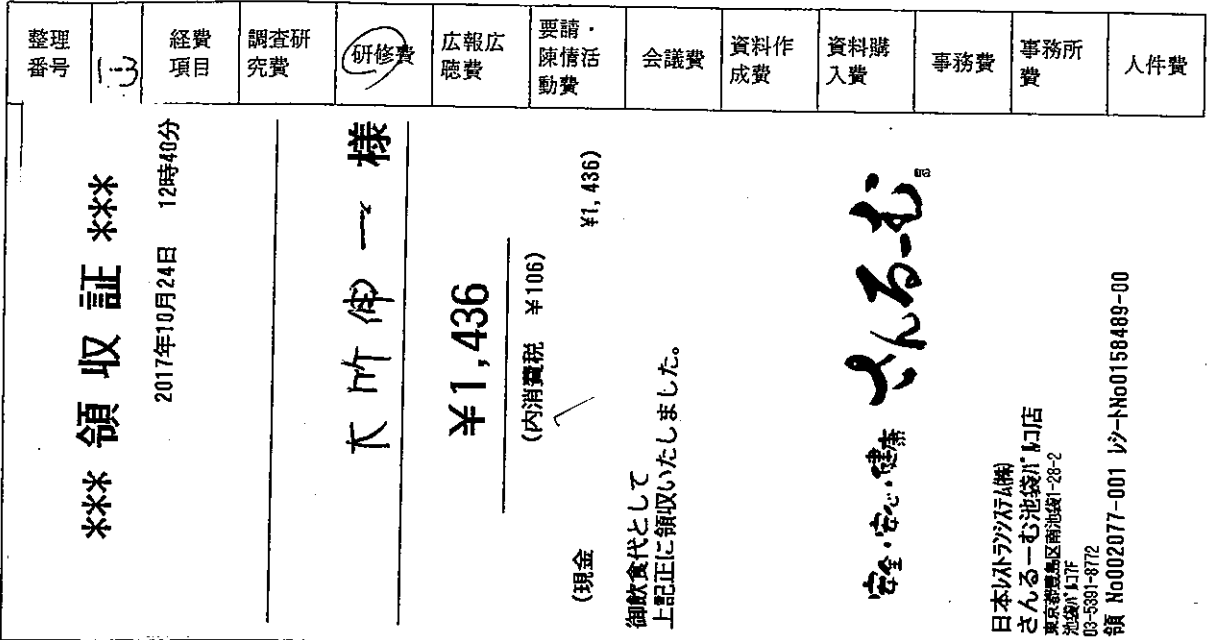 整理番号
経費項目
調査研究費
研修費
広報広聴費
要請・陳情活動費
会議費
資料作成費
資料購入費
事務費
事務所費
人件費
*** 領 収 証 ***
2017年10月24日 12時40分
大竹伸一 様
¥1,436
(内消費税 ¥106)
(現金 ¥1,436)
御飲食代として
上記正に領収いたしました。
安全・安心・健康 さんるーむ
日本レストランシステム(株)
さんるーむ池袋パルコ店
東京都豊島区南池袋1-28-2
池袋パルコ7F
03-5391-8772
領 No002077-001 レシートNo0158489-00